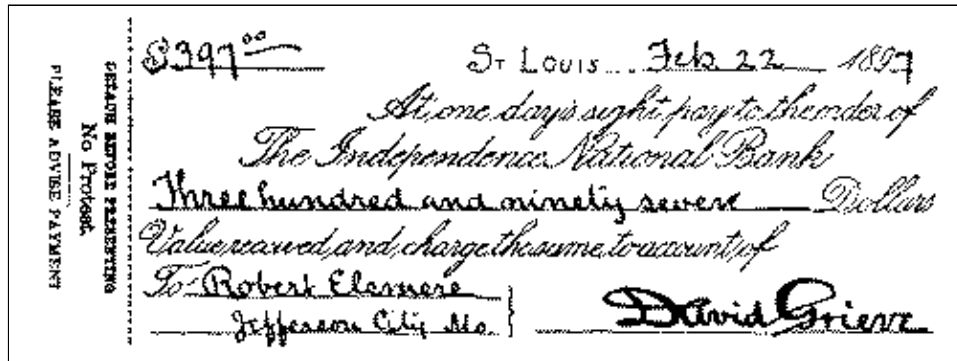 DETACH BEFORE PRESENTING
No Protest.
PLEASE ADVISE PAYMENT
$397.00 St Louis Feb. 22 1897
At one day's sight pay to the order of
The Independence National Bank
Three hundred and ninety seven Dollars
Value received, and charge the same to account of
To Robert Elsmere
Jefferson City Mo. David Grieve